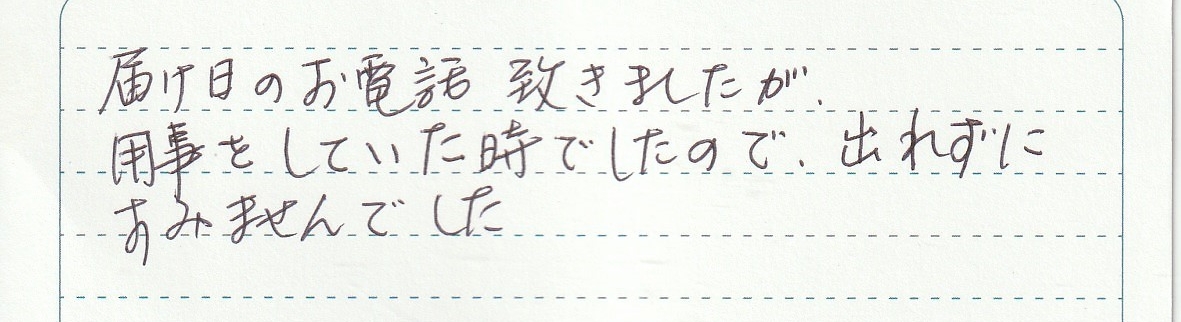 届け日のお電話 致きましたが、
用事をしていた時でしたので、出れずに
すみませんでした